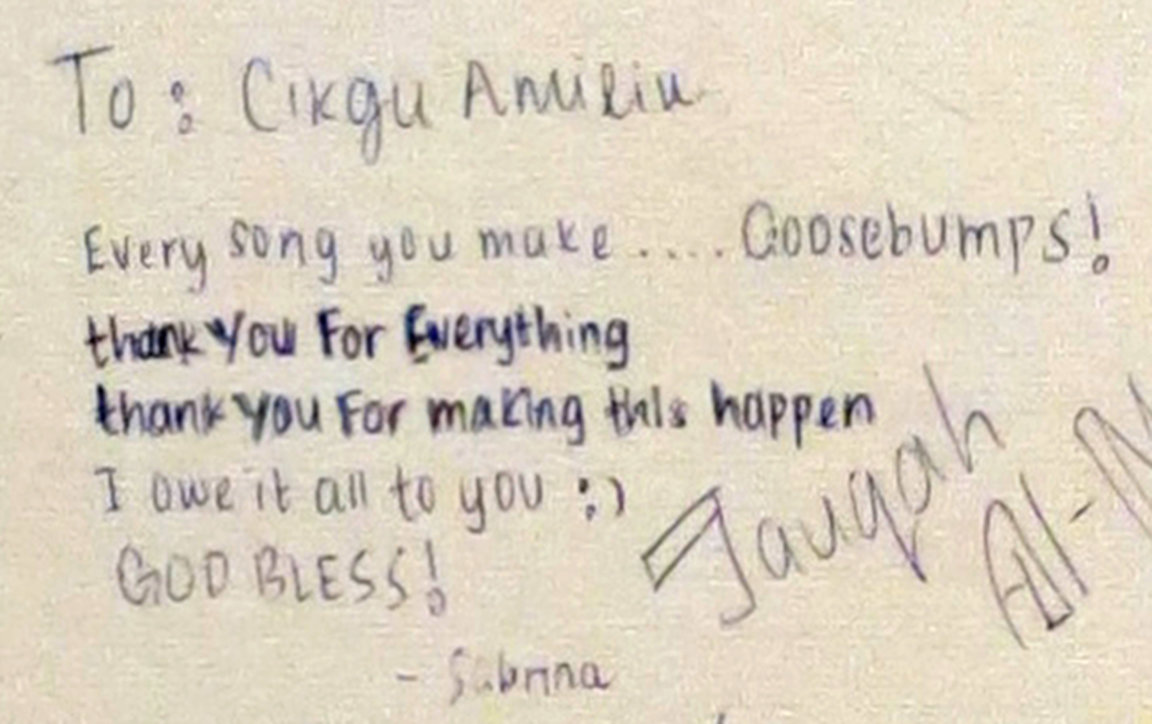 To: Cikgu
Every song you make ..... Goosebumps!
thank You For Everything
thank you For making this happen
I owe it all to you :)
GOD BLESS!
- Sabrina